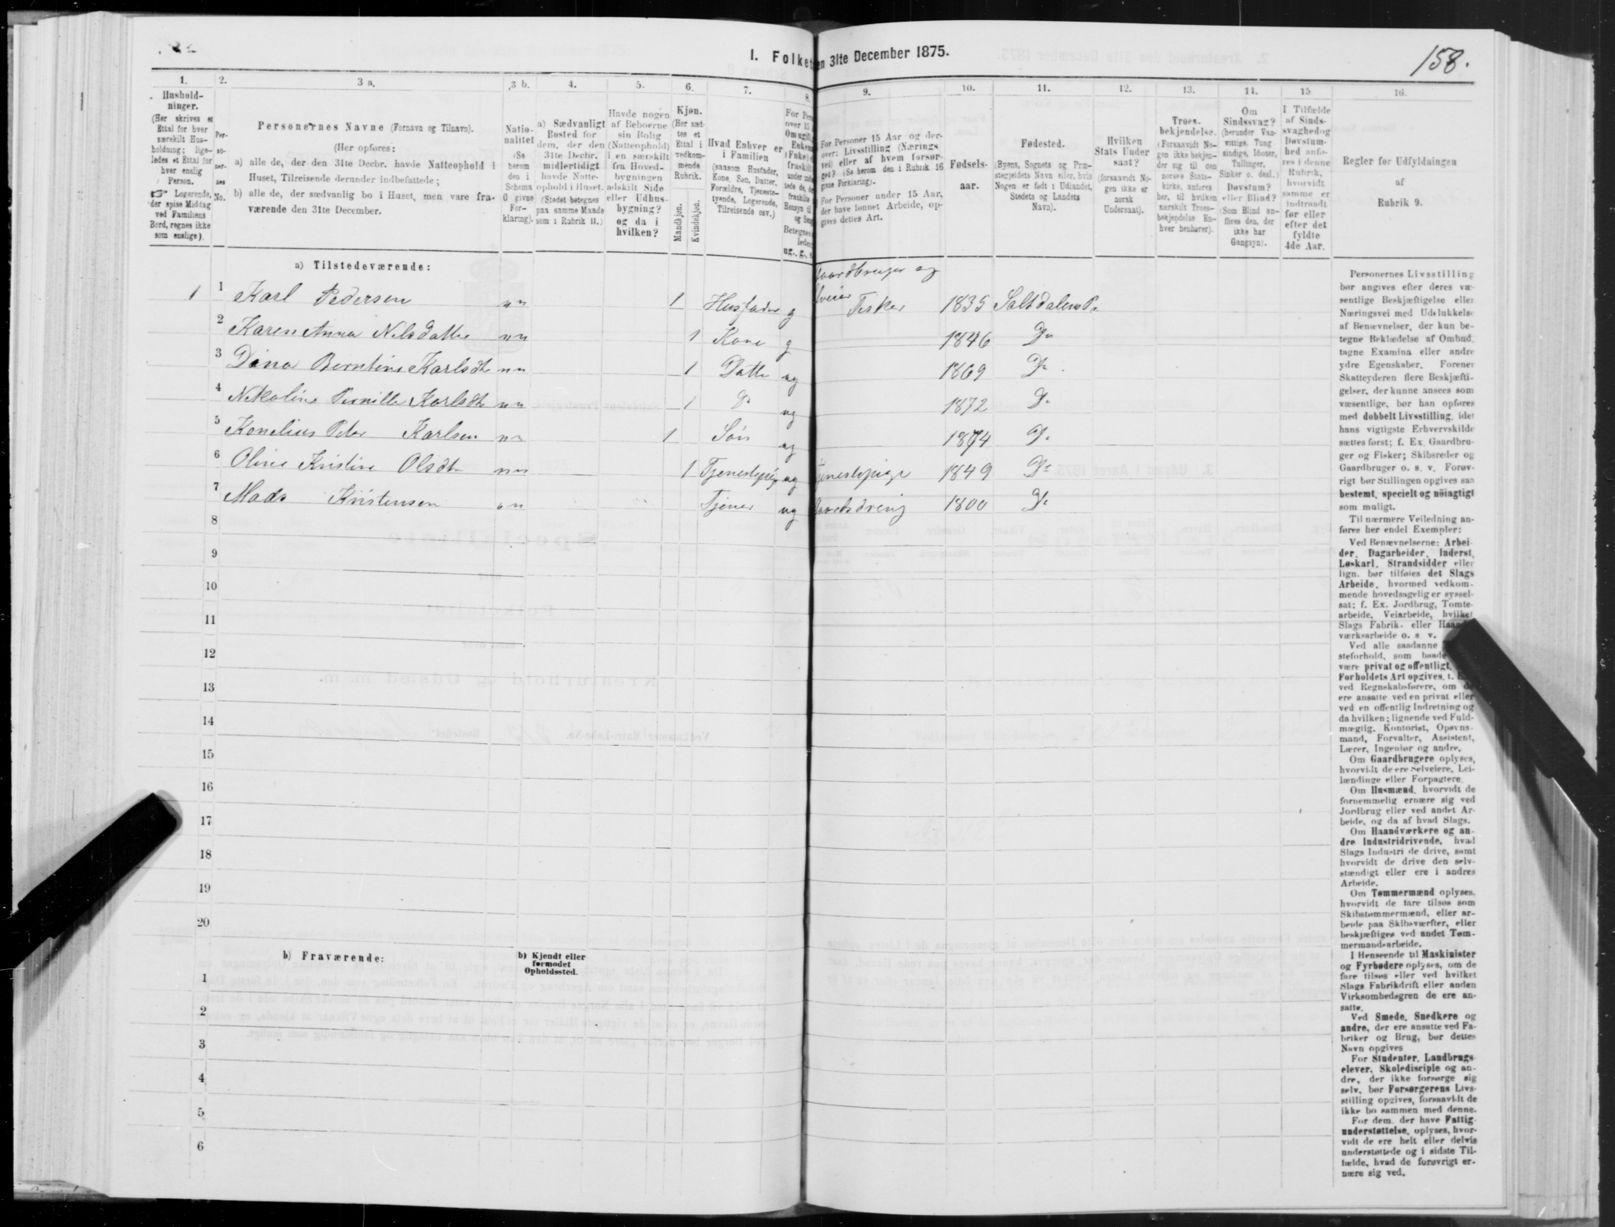 I. Folket
en 31te December 1875.
158.
1. 2. 3 a. 3 b. 4. 5. 6. 7. 8. 9. 10. 11. 12. 13. 14. 15 16.
Hushold-
ninger.
(Her skrives et
Ettal for hver
særskilt Hus-
holdning; lige-
ledes et Ettal for
hver enslig
Person.
☞ Logerende,
der spise Middag
ved Familiens
Bord, regnes ikke
som enslige).
Per-
No.
Personernes Navne (Fornavn og Tilnavn).
(Her opføres:
a) alle de, der den 31te Decbr. havde Natteophold i
Huset, Tilreisende derunder indbefattede;
b) alle de, der sædvanlig bo i Huset, men vare fra-
værende den 31te December.
Natio-
nalitet
(Se
herom
den i
Schema
6 givne
For-
klaring).
a) Sædvanligt
Bosted for
dem, der den
31te Decbr.
midlertidigt
havde Natte-
ophold i Huset.
(Stedet betegnes
paa samme Maade
som i Rubrik 11.)
Havde nogen
af Beboerne
sin Bolig
(Natteophold)
i en særskilt
fra Hoved-
bygningen
adskilt Side
eller Udhus-
bygning?
og da i
hvilken?
Kjøn.
(Her sæt-
tes et
Ettal i
vedkom-
mende
Rubrik.
Mandkjøn.
Kvindekjøn.
Hvad Enhver er
i Familien
(saasom Husfader,
Kone, Søn, Datter,
Forældre, Tjeneste-
tyende, Logerende,
Tilreisende osv.)
For Pers
over 15
For Personer 15 Aar og der-
over: Livsstilling (Nærings-
vei) eller af hvem forsør-
get? (Se herom den i Rubrik 16
givne Forklaring).
For Personer under 15 Aar,
der have lønnet Arbeide, op-
gives dettes Art.
Fødsels-
aar.
Fødested.
(Byens, Sognets og Præ-
stegjeldets Navn eller, hvis
Nogen er født i Udlandet,
Stedets og Landets
Navn).
Hvilken
Stats Under
saat?
(forsaavidt No-
gen ikke er
norsk
Undersaat).
Troes-
bekjendelse.
(Forsaavidt No-
gen ikke bekjen-
der sig til den
norske Stats-
kirke, anføres
her, til hvilken
særskilt Troes-
bekjendelse En-
hver henhører).
Om
Sindssvag?
(herunder Van-
vittige, Tung
sindige, Idioter,
Tullinger,
Sinker o. desl.)
Døvstum?
eller Blind?
(Som Blind an-
føres den, der
ikke har
Gangsyn).
I Tilfælde
af Sinds-
svaghed og
Døvstum-
hed anfø-
res i denne
Rubrik,
hvorvidt
samme er
indtraadt
før eller
efter det
fyldte
4de Aar.
Regler for Udfyldningen
af
Rubrik 9.
a) Tilstedeværende:
1 1 Karl Pedersen nn 1 Husfader g Gaardbruger og Selveier Fisker 1835 Saltdalens P.
2 Karen Anna Nilsdatter nn 1 Kone g 1846 Do
3 Dina Berntine Karlsdt nn 1 Datter ug 1869 Do
4 Nikoline Pernille Karlsdt nn 1 Do ug 1872 Do
5 Konelius Peter Karlsen nn 1 Søn ug 1874 Do
6 Oline Kristine Olsdt nn 1 Tjenestepige ug Tjenestepige 1849 Do
7 Mads Kristensen nn Tjener ug 1800 Do
8
9
10
11
12
13
14
15
16
17
18
19
20
b) Fraværende:
b) Kjendt eller
formodet
Opholdssted.
1
2
3
4
5
6
Personernes Livsstilling
bør angives efter deres væ-
sentlige Beskjæftigelse eller
Næringsvei med Udelukkelse
af Benævnelser, der kun be-
tegne Beklædelse af Ombud,
tagne Examina eller andre
ydre Egenskaber. Forener
Skatteyderen flere Beskjæfti-
gelser, der kunne ansees som
væsentlige, bør han opføres
med dobbelt Livsstilling, idet
hans vigtigste Erhvervskilde
sættes først; f. Ex. Gaardbru-
ger og Fisker; Skibsreder og
Gaardbruger o. s. v. Forøv-
rigt bør Stillingen opgives saa
bestemt, specielt og nöiagtigt
som muligt.
Til nærmere Veiledning an-
føres her endel Exempler:
Ved Benævnelserne: Arbei-
der, Dagarbeider, Inderst,
Løskarl, Strandsidder eller
lign. bør tilføies det Slags
Arbeide, hvormed vedkom-
mende hovedsagelig er syssel-
sat; f. Ex. Jordbrug, Tomte-
arbeide, Veiarbeide, hvilket
Slags Fabrik- eller
værksarbeide o. s. v.
Ved alle saadanne
steforhold, som baade
være privat og offentligt,
Forholdets Art opgives, t.
ved Regnskabsførere, om
ere ansatte ved en privat eller
ved en offentlig Indretning og
da hvilken; lignende ved Fuld-
mægtig, Kontorist, Opsyns-
mand, Forvalter, Assistent,
Lærer, Ingeniør og andre.
Om Gaardbrugere oplyses,
hvorvidt de ere Selveiere, Lei-
lændinge eller Forpagtere.
Om Husmænd, hvorvidt de
fornemmelig ernære sig ved
Jordbrug eller ved andet Ar-
beide, og da af hvad Slags.
Om Haandværkere og an-
dre Industridrivende, hvad
Slags Industri de drive, samt
hvorvidt de drive den selv-
stændigt eller ere i andres
Arbeide.
Om Tømmermænd oplyses,
hvorvidt de fare tilsøs som
Skibstømmermænd, eller ar-
beide paa Skibsværfter, eller
beskjæftiges ved andet Tøm-
mermandsarbeide.
I Henseende til Maskinister
og Fyrbødere oplyses, om de
fare tilsøs eller ved hvilket
Slags Fabrikdrift eller anden
Virksomhedsgren de ere an-
satte.
Ved Smede, Snedkere og
andre, der ere ansatte ved Fa-
briker og Brug, bør dettes
Navn opgives
For Studenter, Landbrugs-
elever, Skoledisciple og an-
dre, der ikke forsørge sig
selv, bør Forsørgerens Livs-
stilling opgives, forsaavidt de
ikke bo sammen med denne.
For dem, der have Fattig-
understøttelse, oplyses, hvor-
vidt de ere helt eller delvis
understøttede og i sidste Til-
fælde, hvad de forøvrigt er-
nære sig ved.